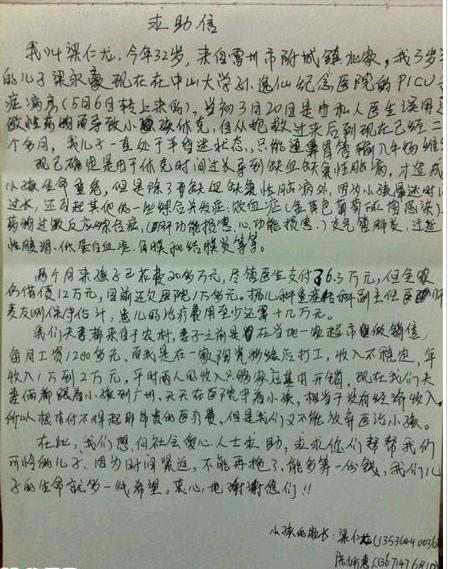 求助信
我叫梁仁龙,今年32岁,来自雷州市附城镇 家,我3岁
的儿子梁家豪现在在中山大学孙逸仙纪念医院的PICU
症病房(5月6日转上来的),当初3月20日是由私人医生误用
敏性药物而导致小孩休克,但从抢救过来后到现在已经二
个多月,我儿子一直处于半昏迷状态,只能通鼻胃管输入牛奶维
现已确诊是由于休克时间过长导致缺血缺氧性脑病,才造成
小孩生命垂危,但是除了有缺血缺氧性脑病外,因为小孩昏迷时
过长,还引起其他的一些综合并发症:败血症(金黄色葡萄球菌感染)
药物过敏反应综合症,(肝功能损害,心功能损害,)支气管肺炎,过敏
性 ,低蛋白血症,角膜和结膜炎等等。
两个月来孩子已花费20多万元,尽管医生支付了6.3万元,但全家
仍借债12万元,目前还欠医院1万多元。据儿科重症 科副主任医师
麦友刚保守估计,患儿的治疗费用至少还要十几万元。
我们夫妻都来自于农村,妻子之前是在当地一家超市做销售,
每月工资1200多元,而我是在一家阳光 店打工,收入不稳定,年
收入1万到2万元,平时两人的收入只够家庭基本开销,现在我们夫
妻俩都跟着小孩到广州,天天在医院守着小孩,相当于没有经济收入,
所以根本付不得起那昂贵的医疗费,但是我们又不能放弃医治小孩。
在此,我们想向社会爱心人士求助,求求你们帮帮我们
可怜的儿子,因为时间紧迫,不能再拖了,能多筹一份钱,我们儿
子的生命就多一线希望。衷心地谢谢您们!!
小孩的家长:梁仁龙(1353644003
陈 惠(13671476810